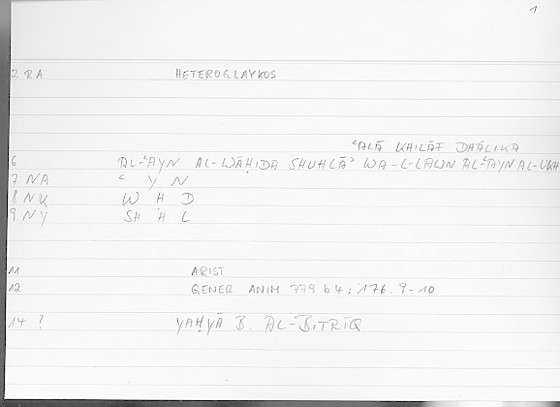 1
2 RA HETEROGLAYKOS
ʿALĀ KHILĀF DHĀLIKA
6 AL-ʿAYN AL-WĀḤIDA SHUHLĀʾ WA-L-LAWN AL-ʿAYN AL-UKH
7 NA ʿ Y N
8 NK W Ḥ D
9 NY SH H L
11 ARIST
12 GENER ANIM 779 b 4; 176. 9-10
14 ? YAḤYĀ B. AL-BIṬRĪQ